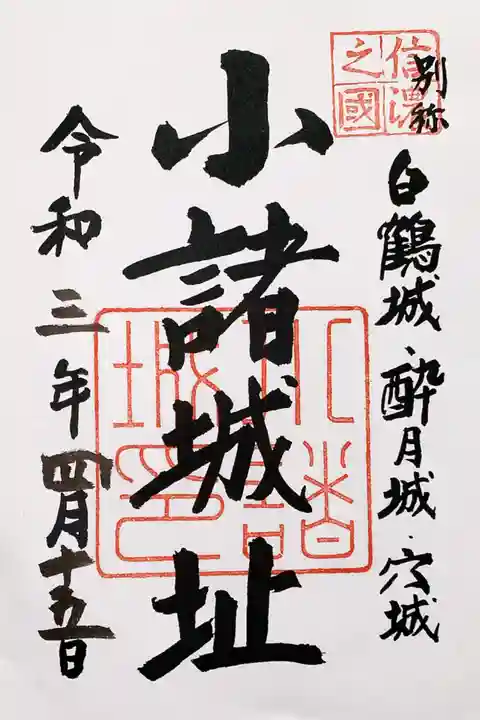 信濃之國
別称
白鶴城・酔月城・穴城
小諸城址
小諸城印
令和三年四月十五日